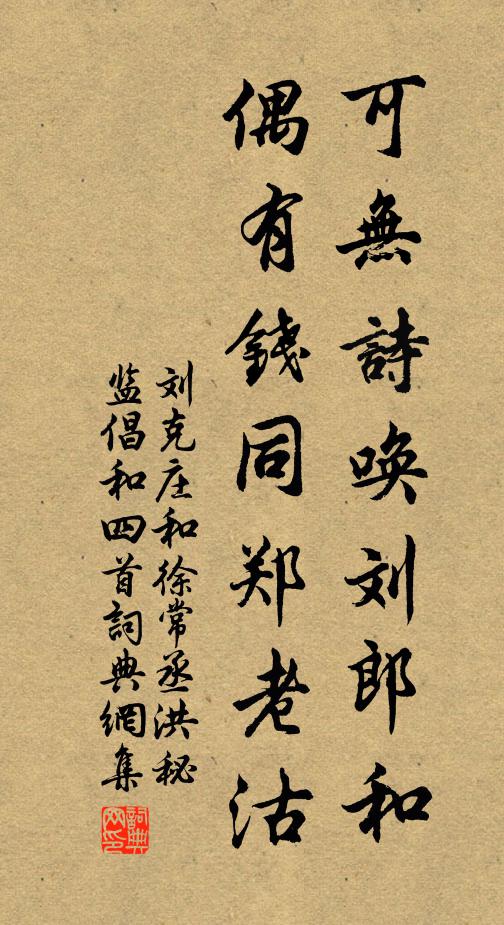 可無詩唤刘郎和
偶有錢同郑老沽
刘克庄和徐常丞洪秘
监倡和四首詞典網集
詞典
网印